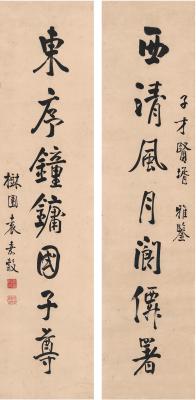 子才贤壻雅鑒
西清風月閬僊署
東序鐘鏞國子尊
樾園袁嘉穀